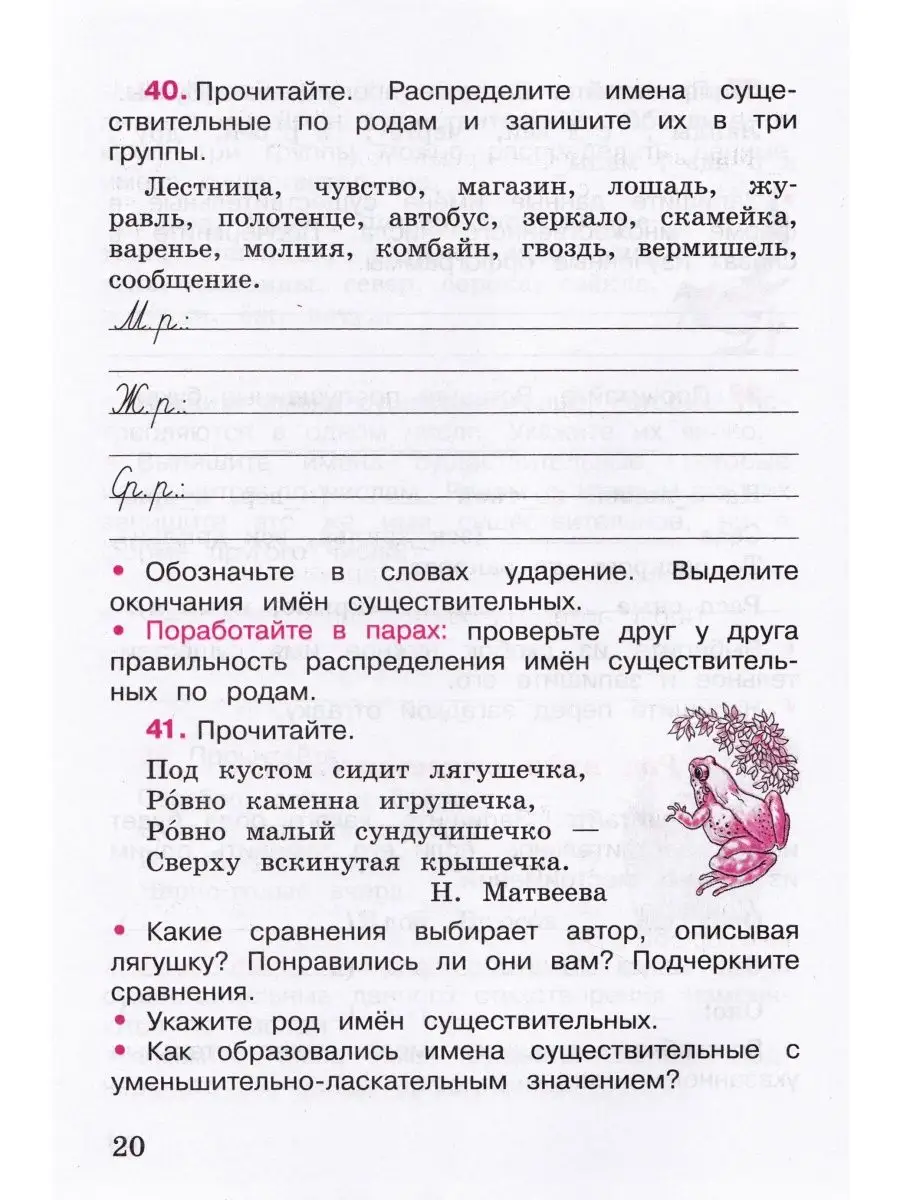 40. Прочитайте. Распределите имена суще-
ствительные по родам и запишите их в три
группы.
Лестница, чувство, магазин, лошадь, жу-
равль, полотенце, автобус, зеркало, скамейка,
варенье, молния, комбайн, гвоздь, вермишель,
сообщение.
М.р.:
Ж.р.:
Ср.р.:
• Обозначьте в словах ударение. Выделите
окончания имён существительных.
• Поработайте в парах: проверьте друг у друга
правильность распределения имён существитель-
ных по родам.
41. Прочитайте.
Под кустом сидит лягушечка,
Ро́вно каменна игрушечка,
Ро́вно малый сундучишечко —
Сверху вскинутая крышечка.
Н. Матвеева
• Какие сравнения выбирает автор, описывая
лягушку? Понравились ли они вам? Подчеркните
сравнения.
• Укажите род имён существительных.
• Как образовались имена существительные с
уменьшительно-ласкательным значением?
20